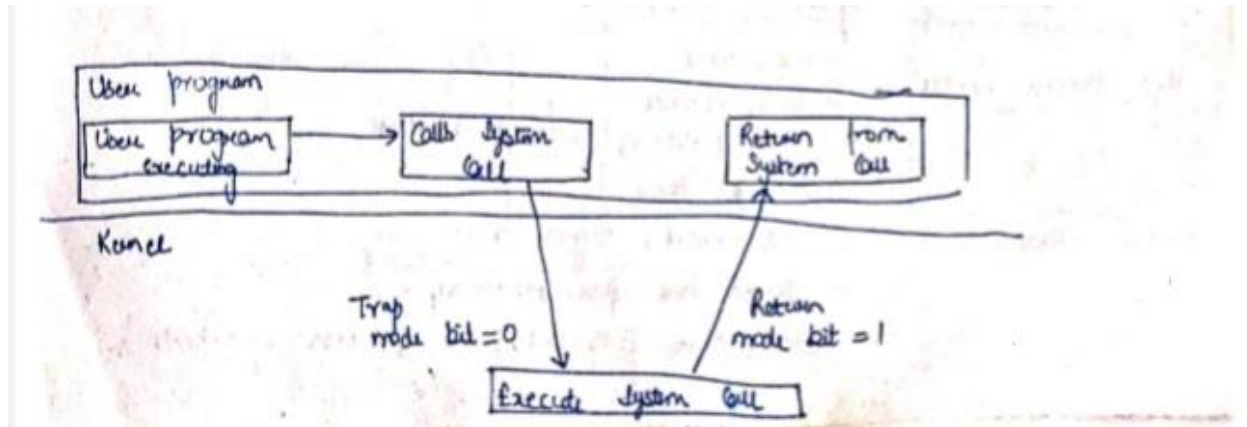 User program
User program
executing
Calls System
Call
Return from
System Call
Kernel
Trap
mode bit = 0
Return
mode bit = 1
Execute System Call